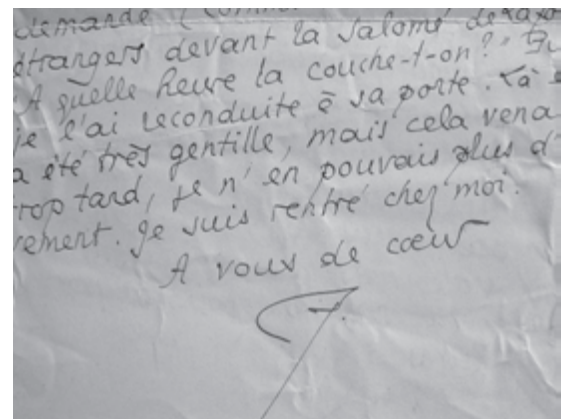 demande
étrangers devant la Salomé
A quelle heure la couche-t-on?"
je l'ai reconduite à sa porte. Là
a été très gentille, mais cela vena
trop tard, je n'en pouvais plus d'
vement. Je suis rentré chez moi.
A vous de cœur